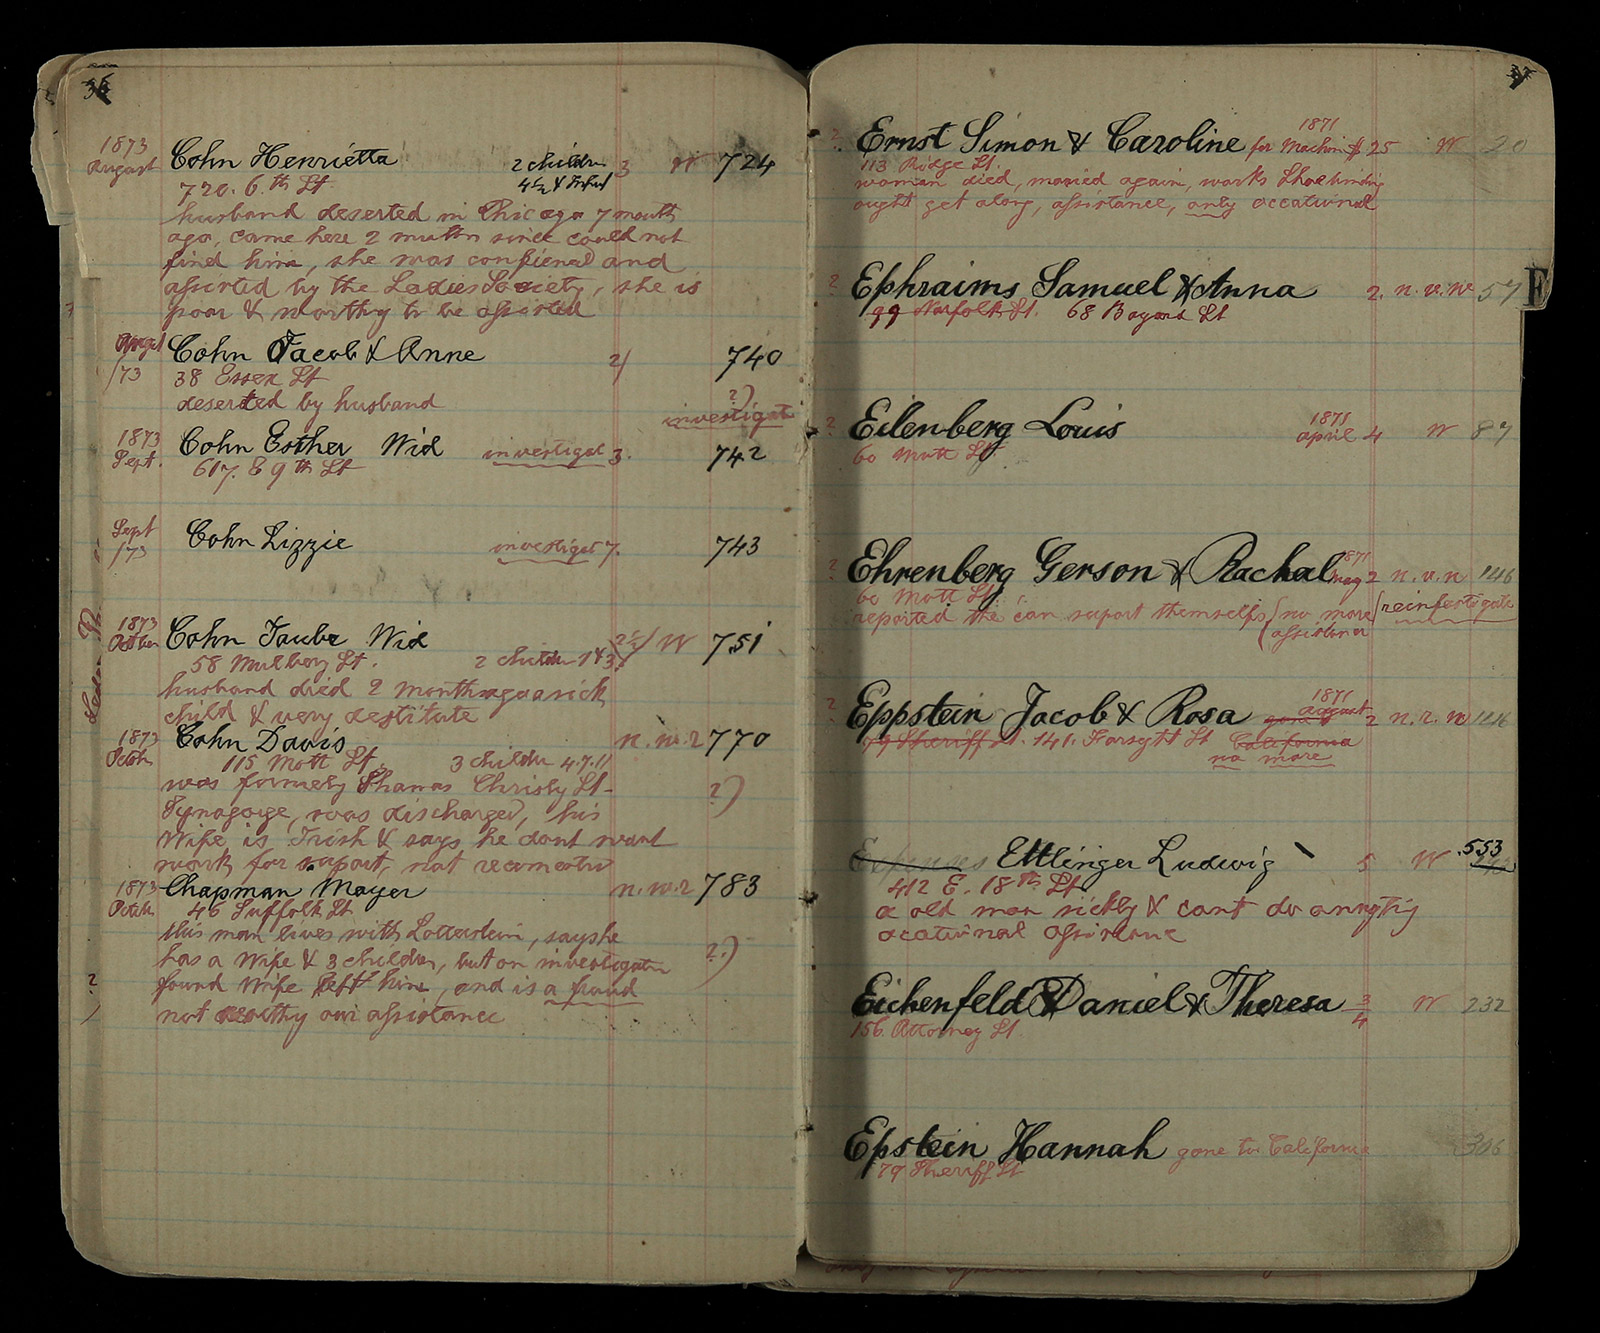 36
1873
August
Cohn Henrietta 2 childr 3 W 724
720. 6.th St 4½ &
husband deserted in Chicago 7 month
ago, came here 2 muthn since could not
find him, she was confiened and
assisted by the Ladies Society, she is
poor & worthy to be assisted
August
/73
Cohn Jacob & Anne 2/ 740
38 Essex St
deserted by husband ?)
investigate
1873
Sept.
Cohn Esther Wid investigat 3. 742
617. E 9th St
Sept
/73
Cohn Lizzie investiget 7. 743
1873
October
Cohn Taube Wid W 751
58 Mulbery St. 2 childr 1 & 3
husband died 2 month ago a sick
child & very destitute
1873
Octob
Cohn Davis n.w.r 770
115 Mott St. 3 childr 4.7.11
was formerly Shamas Christy St- ?)
Synagoge, was discharged, his
Wife is Irish & says he dont want
work for suport, not recomend
1873
Octob.
Chapman Mayer n.w.r 783
46 Suffolk St
this man lives with Lotterstein, says he
has a Wife & 3 children, but on investigatn ?)
found Wife left him, and is a fraud
not worthy our assistance
37
? Ernst Simon & Caroline for Machin $ 25 W 20
1871
113 Ridge St.
woman died, maried again, works Shoebinding
ought get along, assistance, only occational
? Ephraims Samuel & Anna 2. n.v.w 57
99 Norfolk St. 68 Bayard St
E
? Eilenberg Louis 1871 april 4 W 87
60 Mott St
? Ehrenberg Gerson & Rachal 1871 may 2 n.v.n 146
60 Mott St.
reported the can suport themselfs (no more assistance) reinfestigate
? Eppstein Jacob & Rosa 1871 august 2 n.r.w
79 Sheriff St. 141. Forsyth St California
no more
Ettlinger Ludwig 5 W 553
412 E. 18th St
a old man sickly & cant do annytig
ocational assistance
Eichenfeld Daniel & Theresa 3/4 W 232
156 Attorney St
Epstein Hannah gone to California 306
79 Sheriff St